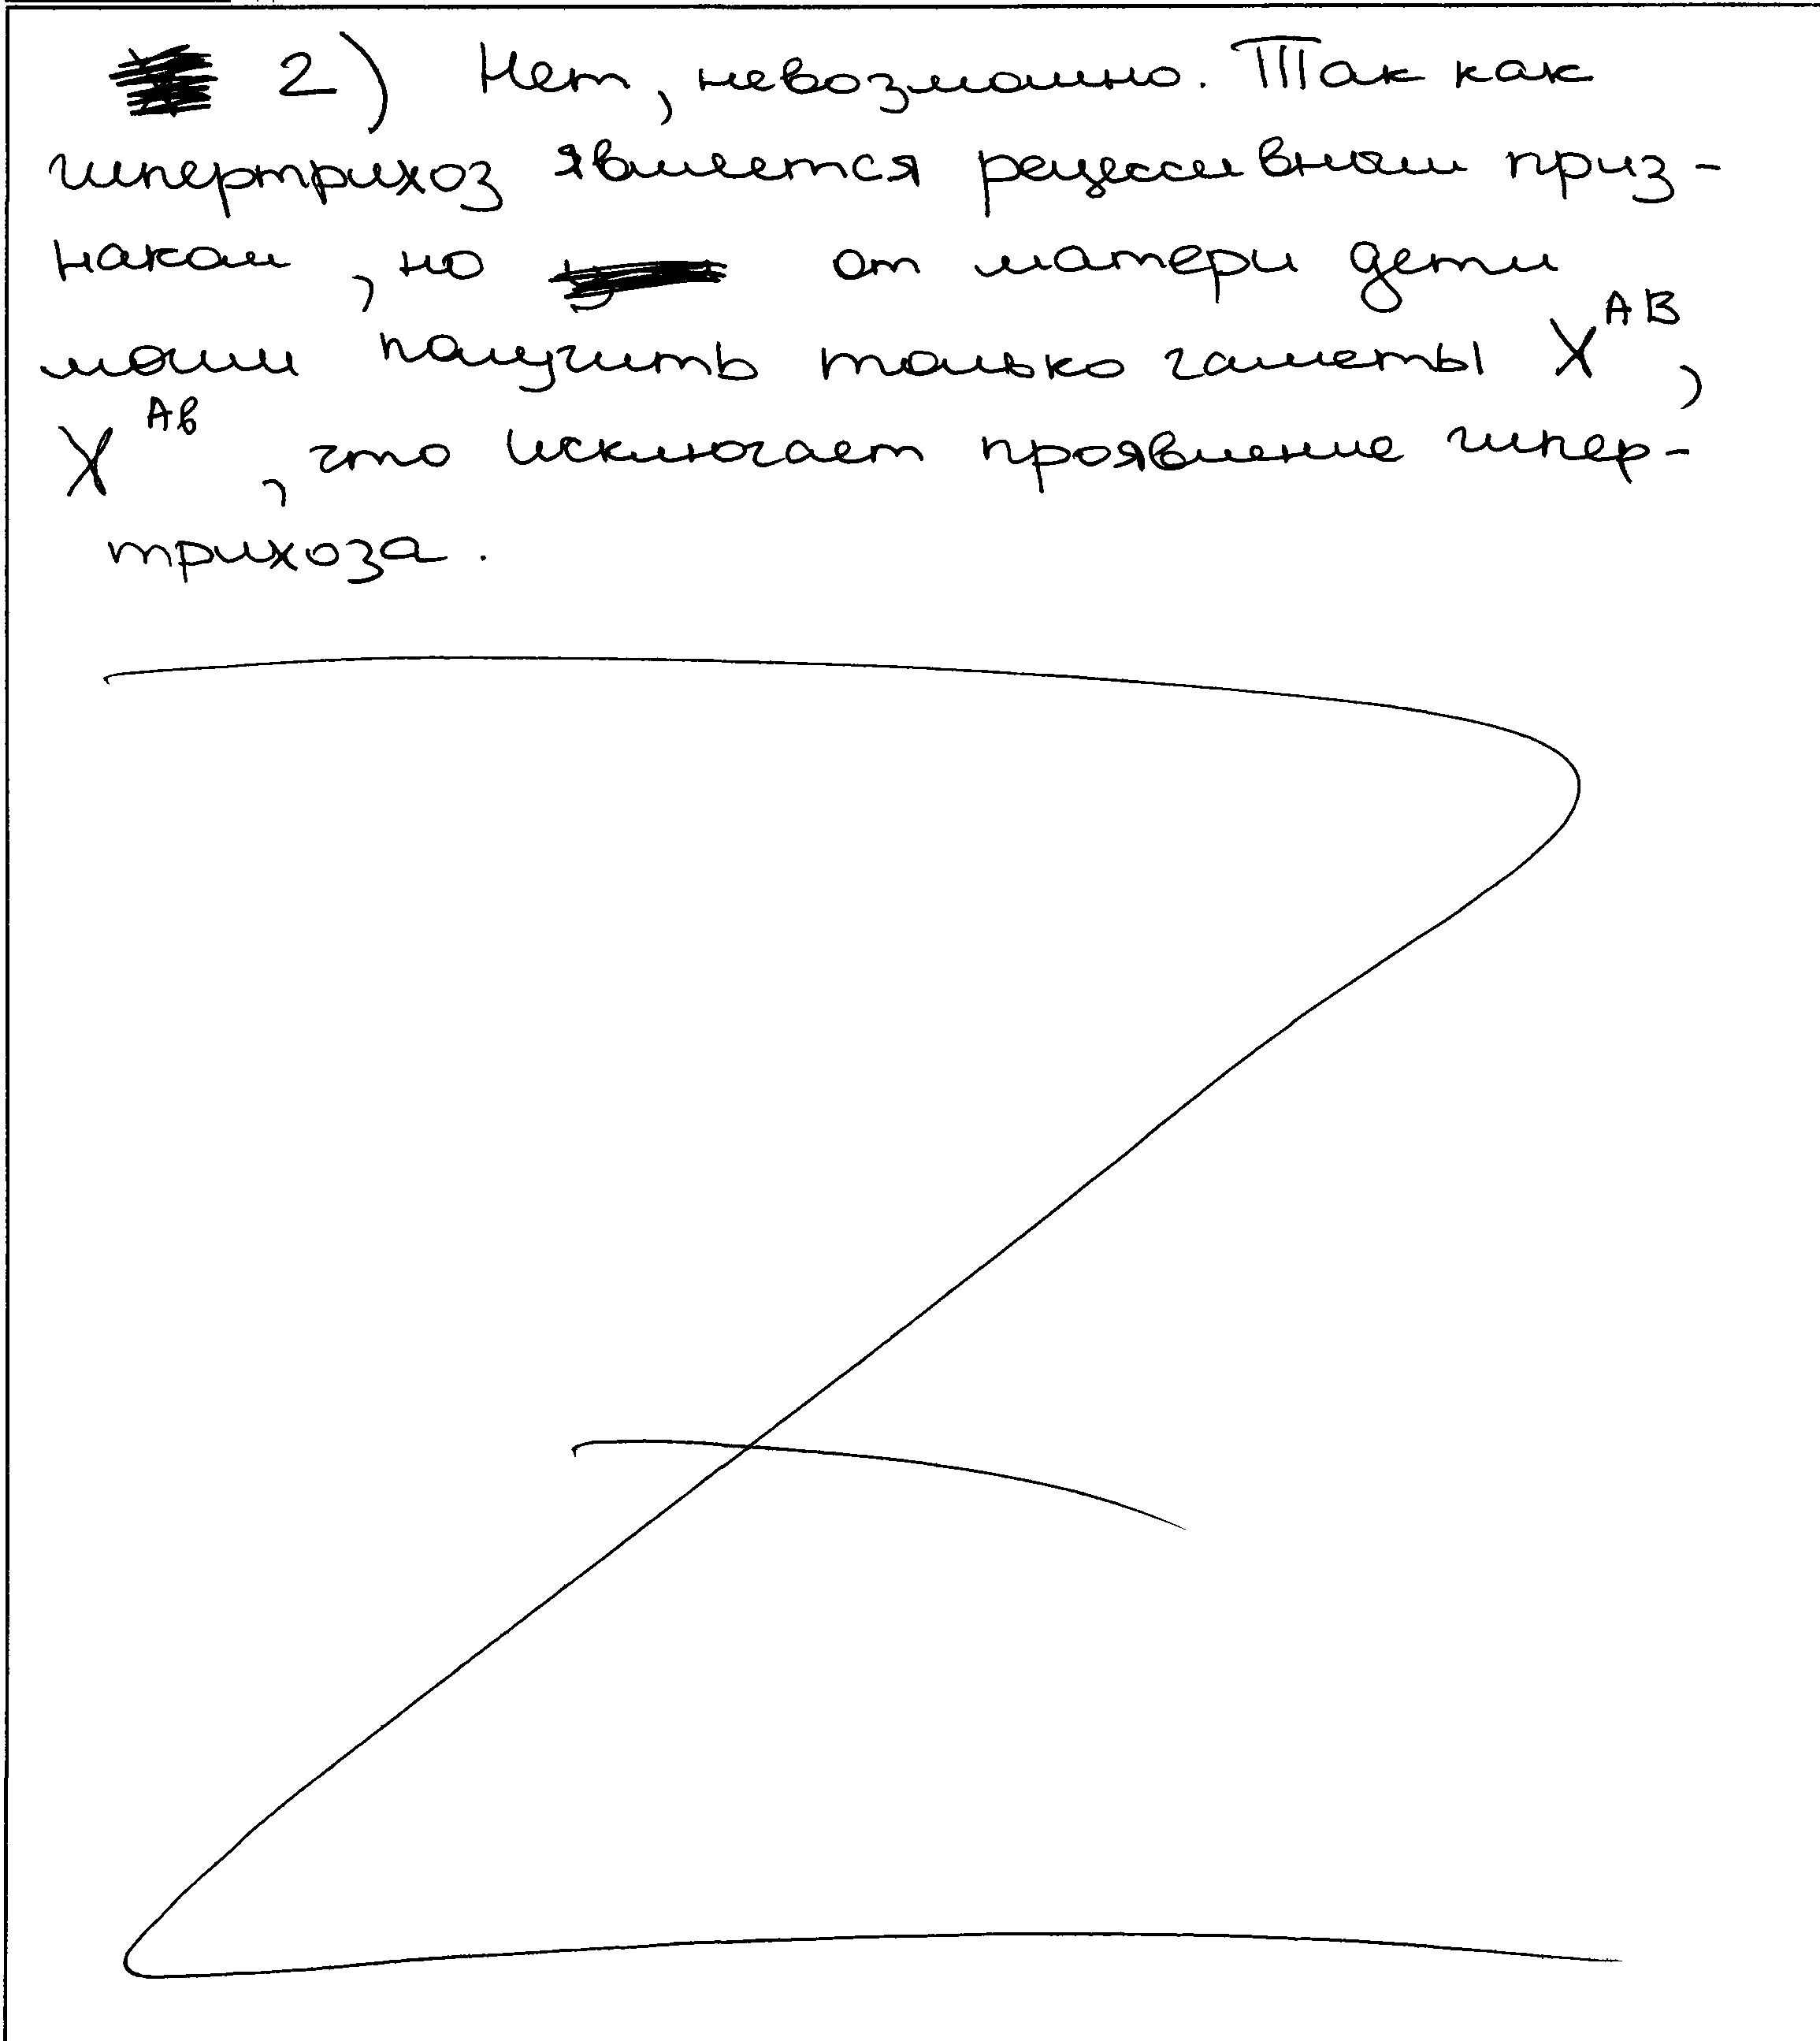 2) Нет, невозможно. Так как
гипертрихоз является рецессивным приз-
наком, но от матери дети
могли получить только гаметы X^AB,
X^Ab, что исключает проявление гипер-
трихоза.